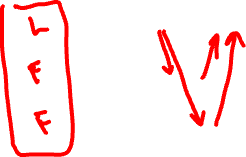 L
F
F